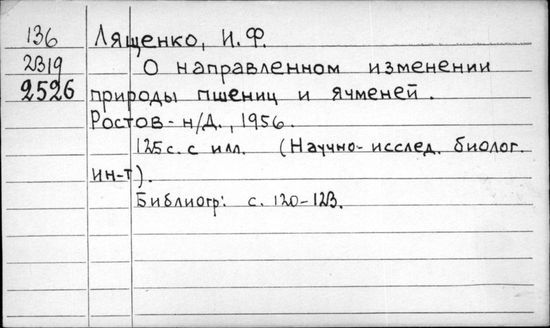 136 Лященко, И. Ф.
2319 О направленном изменении
2526 природы пшениц и ячменей.
Ростов-н/Д., 1956.
125 с. с илл. (Научно-исслед. биолог.
ин-т).
Библиогр: с. 120-123.